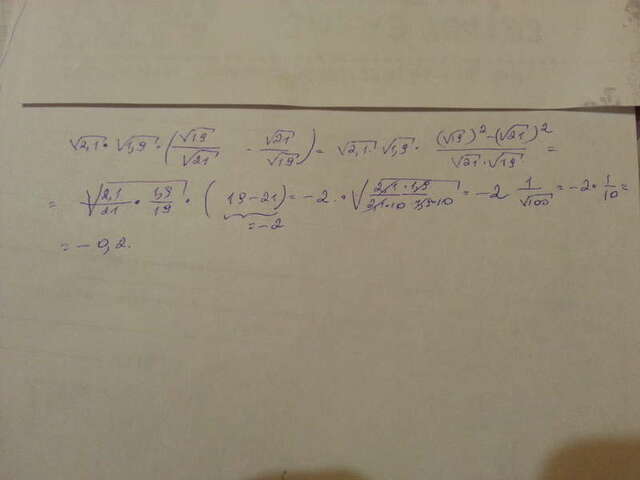 √2,1 · √1,9 · (√19/√21 - √21/√19) = √2,1 · √1,9 · ((√19)² - (√21)²)/(√21 · √19) =
= √(2,1/21 · 1,9/19) · (19 - 21) = -2 · √(2,1 · 1,9/2,1·10 · 1,9·10) = -2 · 1/√100 = -2 · 1/10 =
= -2
= -0,2.